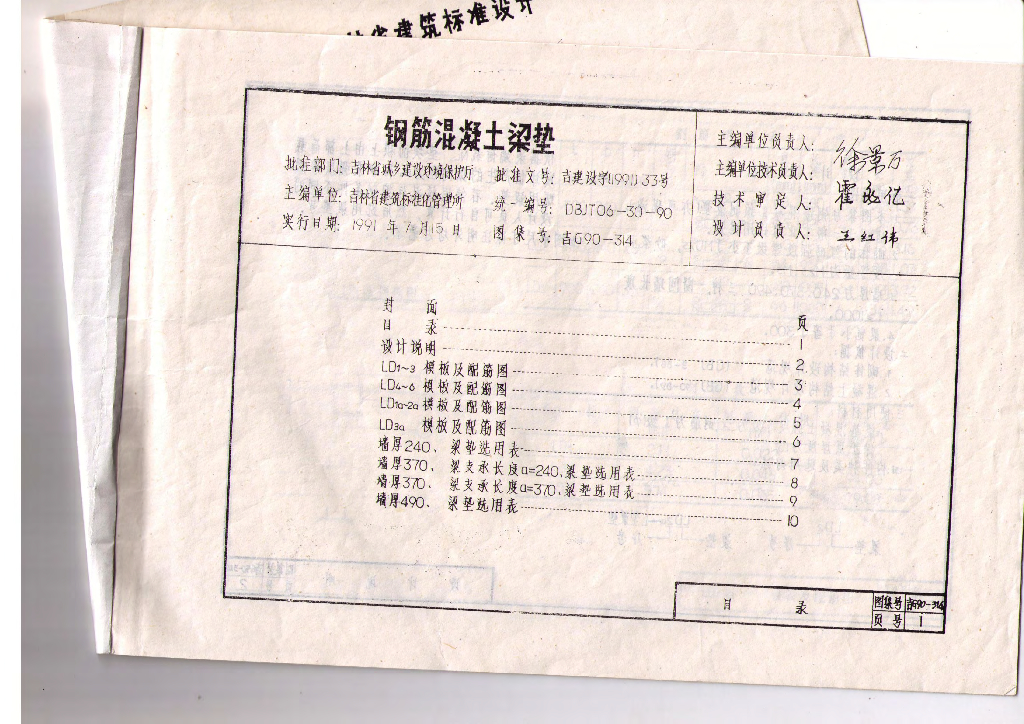 省建筑标准设计
钢筋混凝土梁垫
批准部门: 吉林省城乡建设环境保护厅 批准文号: 吉建设字(1991)33号
主编单位: 吉林省建筑标准化管理所 统一编号: DBJT06-30-90
实行日期: 1991 年 7 月 15 日 图集号: 吉G90-314
主编单位负责人:
主编单位技术负责人:
技术审定人:
设计负责人: 王红伟
封面
页
目录 1
设计说明 2
LD1~3 模板及配筋图 3
LD4~6 模板及配筋图 4
LD1a~2a 模板及配筋图 5
LD3a 模板及配筋图 6
墙厚240、梁垫选用表 7
墙厚370、梁支承长度a=240,梁垫选用表 8
墙厚370、梁支承长度a=370,梁垫选用表 9
墙厚490、梁垫选用表 10
目录 图集号 吉G90-314
页号 1